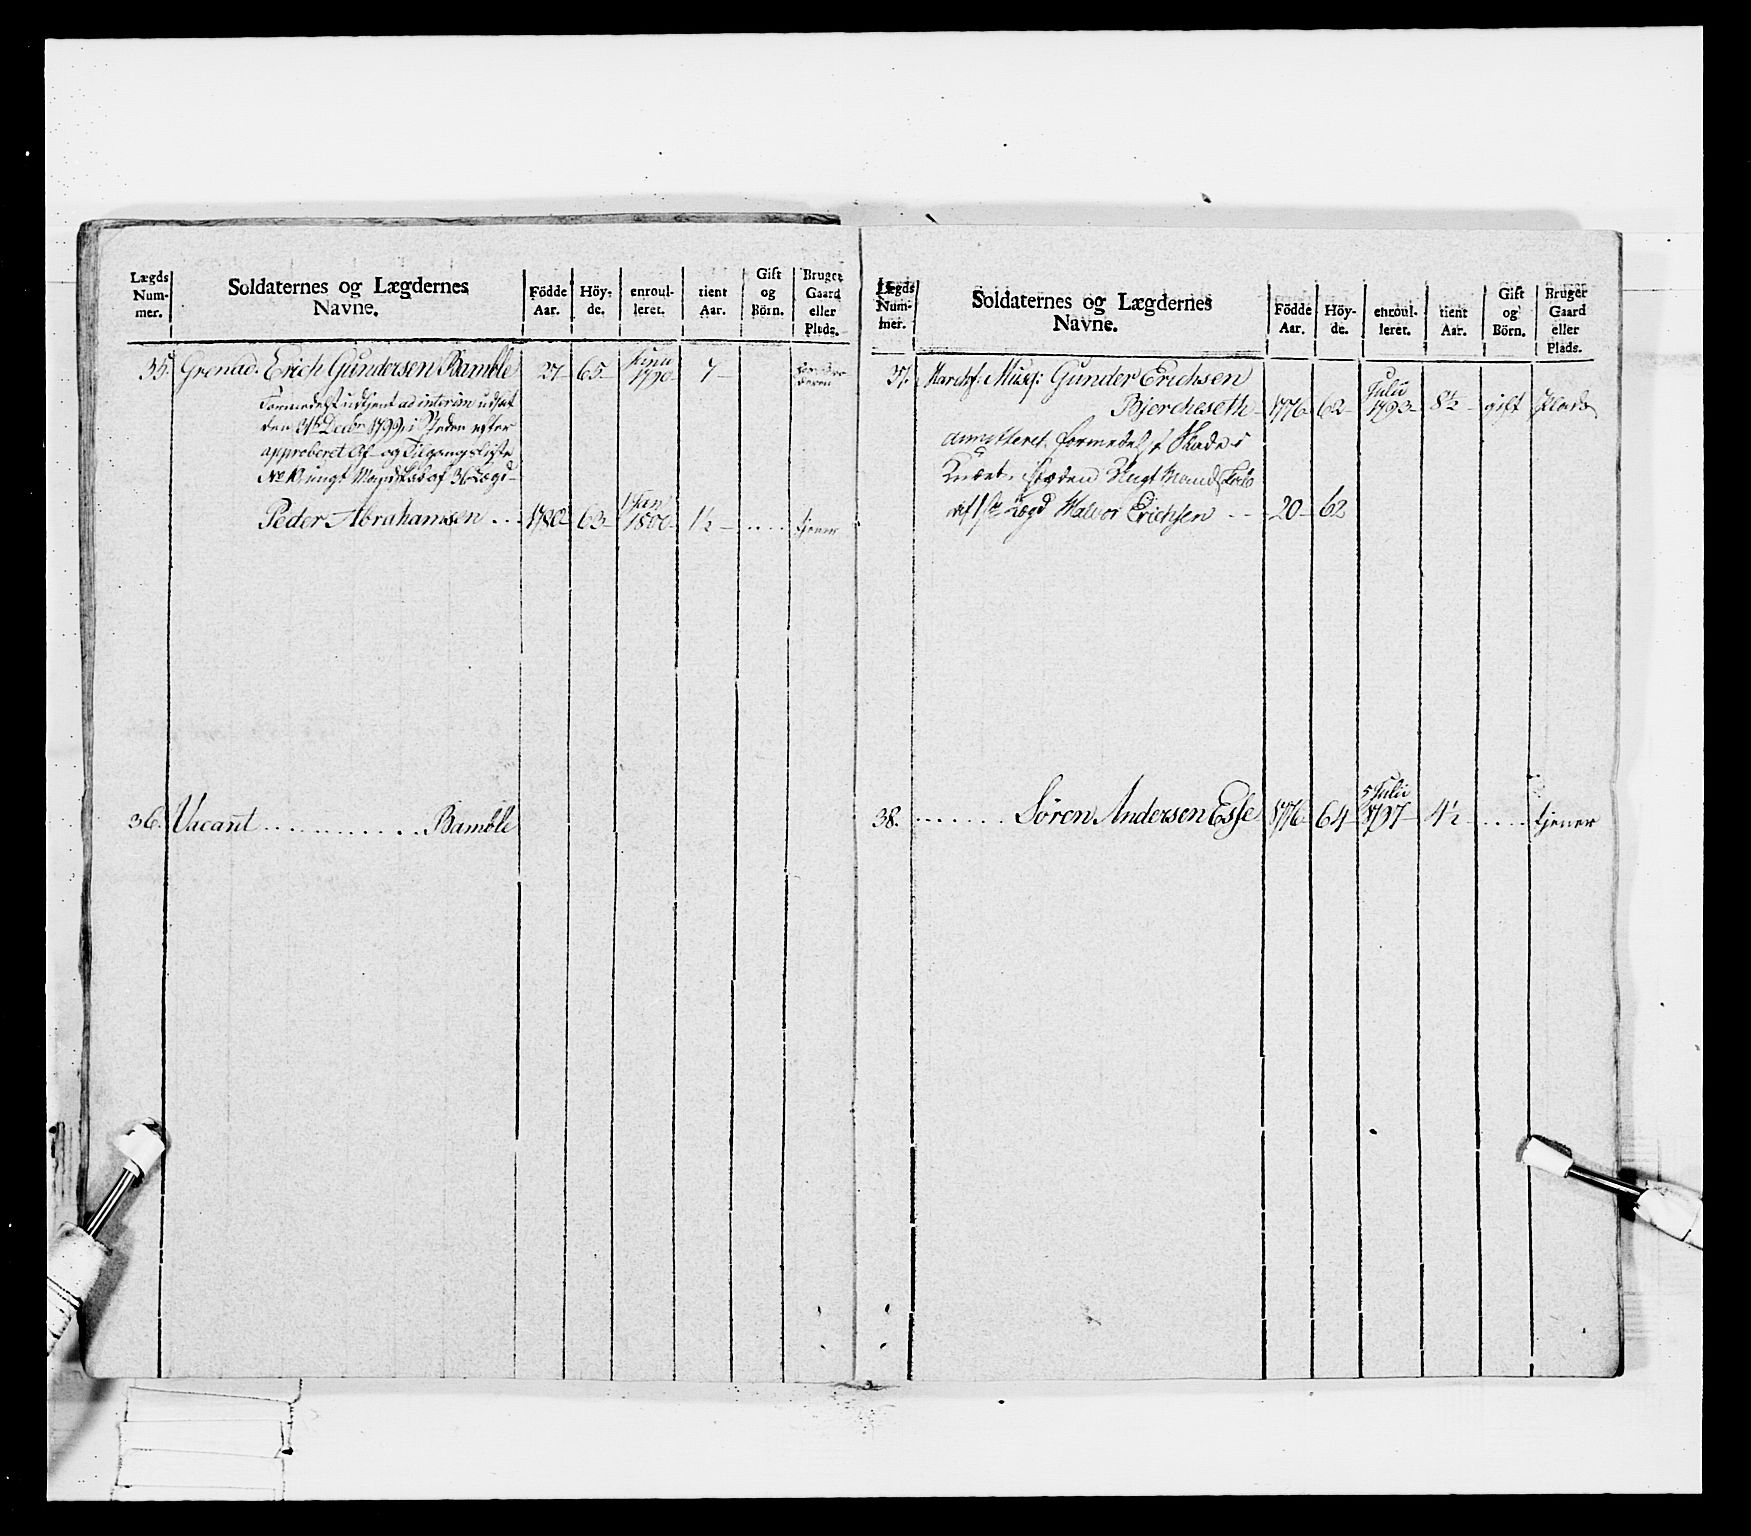 Lægds Num- mer. Soldaternes og Lægdernes Navne. Födde Aar. Höy- de. enroul- leret. tient Aar. Gift og Börn. Bruger Gaard eller Plads.
35. Grenad. Erich Gundersen Bamble 27 65 1790 7
Formedelst udtient ad interim udsat
den 31te Decbr 1799 i Steden efter
approberet Af- og Tilgangsliste
No ungt Mandskab af 36 Lægd
Peder Abrahamsen ... 1780 63 1 Jan 1800 1½ .... tjener
36. Vacant ............ Bamble
Lægds Num- mer. Soldaternes og Lægdernes Navne. Födde Aar. Höy- de. enroul- leret. tient Aar. Gift og Börn. Bruger Gaard eller Plads.
37. Musq: Gunder Erichsen
Bjercheseth 1776 62 Julii 1793 8½ gift Plads
formedelst Skade i
Knæet, i steden Ungt Mandskab
af Lægd Halvor Erichsen -- 20 62
38. ....... Søren Andersen Esse 1776 64 5 Julii 1797 4½ .... tjener